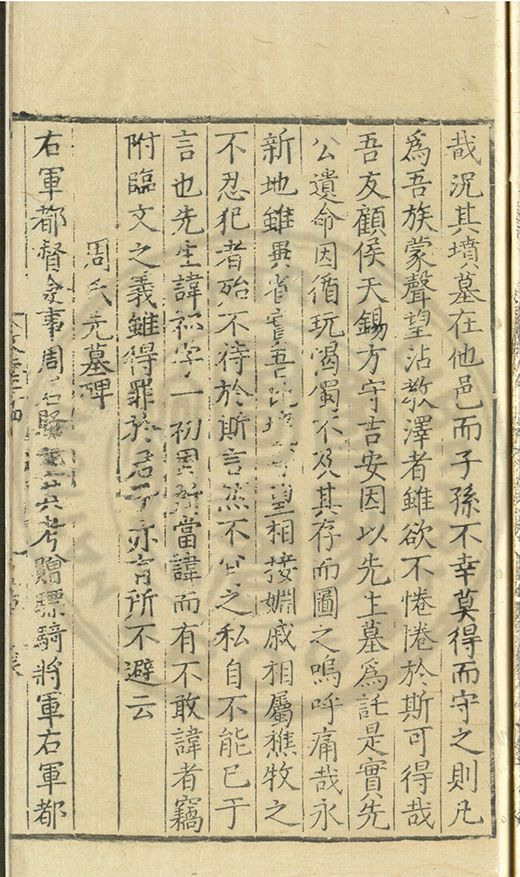 哉況其墳墓在他邑而子孫不幸莫得而守之則凡
為吾族蒙聲望沾教澤者雖欲不惓惓於斯可得哉
吾友顧侯天錫方守吉安因以先生墓為託是實先
公遺命因循玩愒蜀不及其存而圖之嗚呼痛哉永
新地雖異省實吾望相接姻戚相屬樵牧之
不忍犯者殆不待於斯言然不之私自不能已于
言也先生諱祁字一初固當諱而有不敢諱者竊
附臨文之義雖得罪於君子亦有所不避云
周氏先墓碑
右軍都督僉事周君考贈驃騎將軍右軍都